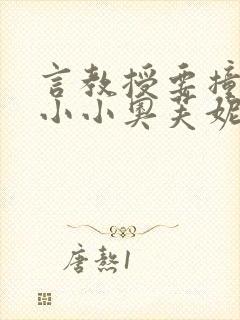 言教授要撞
小小奥芙妮
唐熬1